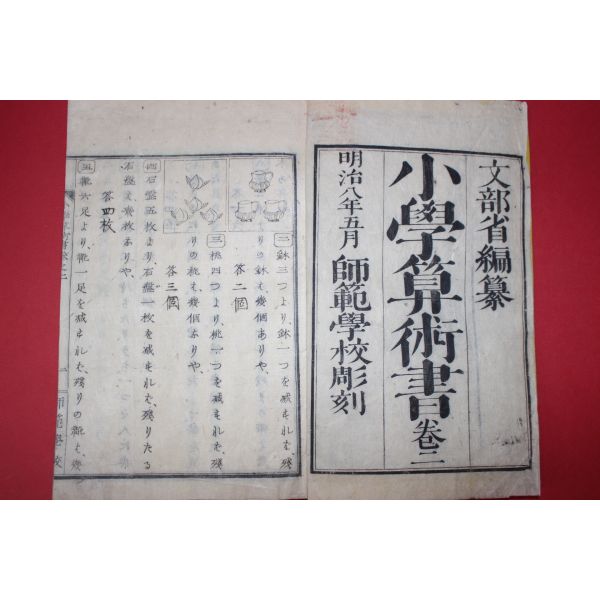 文部省編纂
小學算術書 卷二
明治八年五月 師範學校彫刻
二 鉢三つより、鉢一つを減すれは、殘
りの鉢は、幾個ありや、
答二個
三 桃四つより、桃一つを減すれは、殘
りの桃は、幾個ありや、
答三個
四 石盤五枚より、石盤一枚を減すれは、殘りたる
石盤は、幾枚ありや、
答四枚
五 靴六足より、靴一足を減すれは、殘りの靴は、幾
一 師範學校